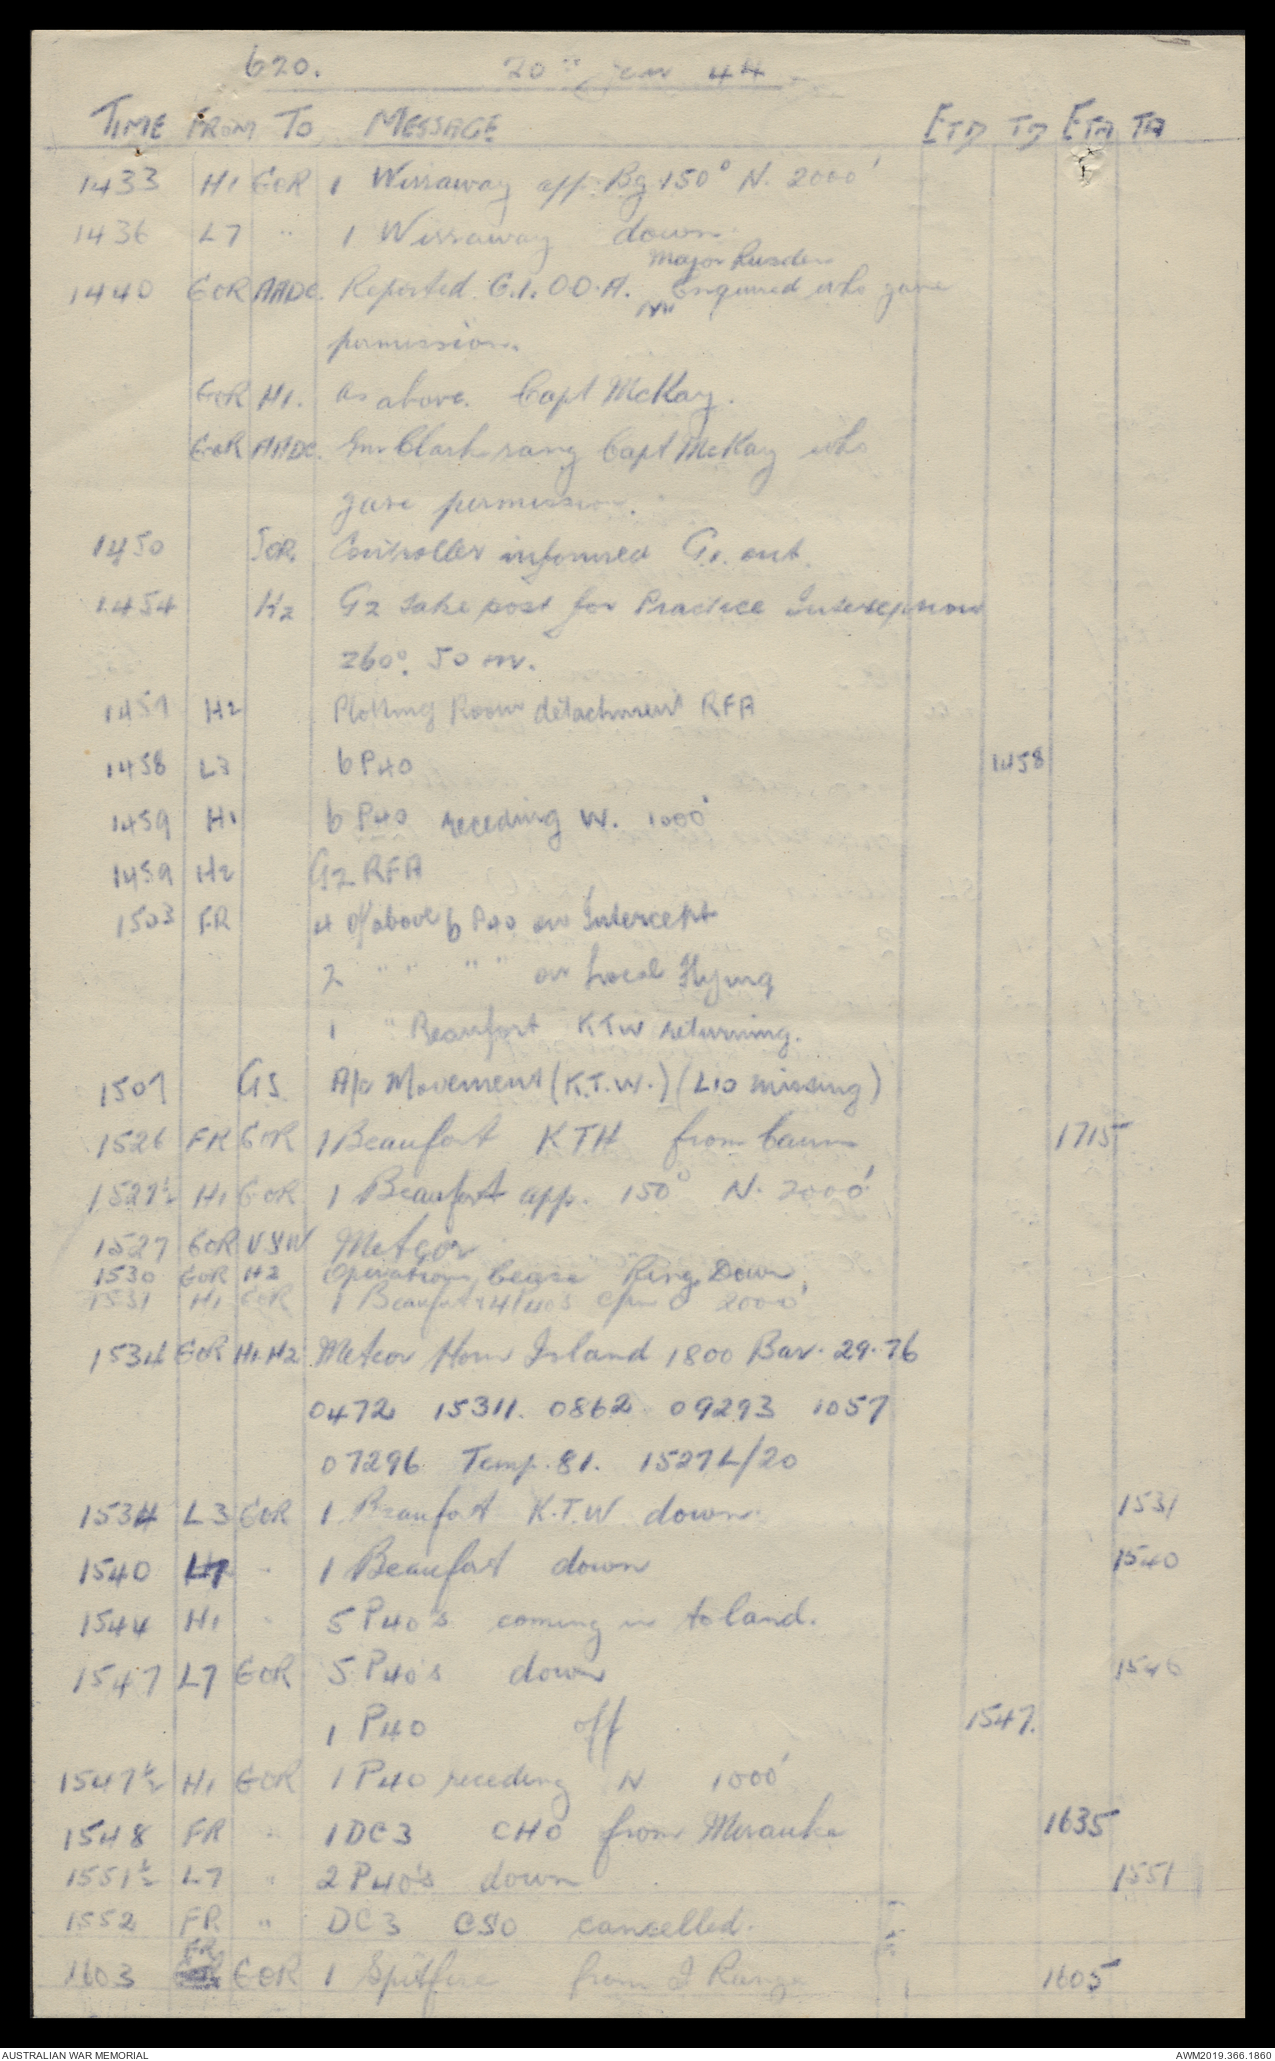 620. 20th Jan 44
TIME FROM TO MESSAGE ETD TD ETA TA
1433 H1 GOR 1 Wirraway app. Bg 150° N. 2000'
1436 L7 " 1 Wirraway down
Major Rusden
1440 GOR AADC. Reported G.1. O.O.A. Enquired who gave
permission.
GOR H1. as above. Capt McKay.
GOR AADC. Gnr Clark rang Capt McKay who
gave permission.
1450 SOR. Controller informed G1. out.
1454 H2 G2 take post for Practice Interception
260°. 50 m.
1459 H2 Plotting Room detachment RFA
1458 L3 6 P40 1458
1459 H1 6 P40 receding W. 1000'
1459 H2 G2 RFA
1503 FR 4 of above 6 P40 on Intercept
2 " " " " on Local Flying
1 " Beaufort KTW returning.
1507 GS A/c Movement (K.T.W.) (L10 missing)
1526 FR GOR 1 Beaufort KTH from Cairns 1715
1527½ H1 GOR 1 Beaufort app. 150° N. 2000'
1527 GOR Meteor
1530 GOR H2 Operations Cease "Ring Down"
1531 H1 GOR 1 Beaufort & 4 P40's 2000'
1534 GOR H1.H2 Meteor Horn Island 1800 Bar. 29.76
0472 15311. 0862 09293 1057
07296 Temp. 81. 1527L/20
1534 L3 GOR 1 Beaufort K.T.W down. 1531
1540 L7 " 1 Beaufort down 1540
1544 H1 " 5 P40's coming in to land.
1547 L7 GOR 5 P40's down 1546
1 P40 off 1547.
1547½ H1 GOR 1 P40 receding N 1000'
1548 FR " 1 DC3 CHO from Merauke 1635
1551½ L7 " 2 P40's down 1551
1552 FR " DC3 CSO cancelled.
FR
1603 GOR 1 Spitfire from I Range 1605
AUSTRALIAN WAR MEMORIAL AWM2019.366.1860